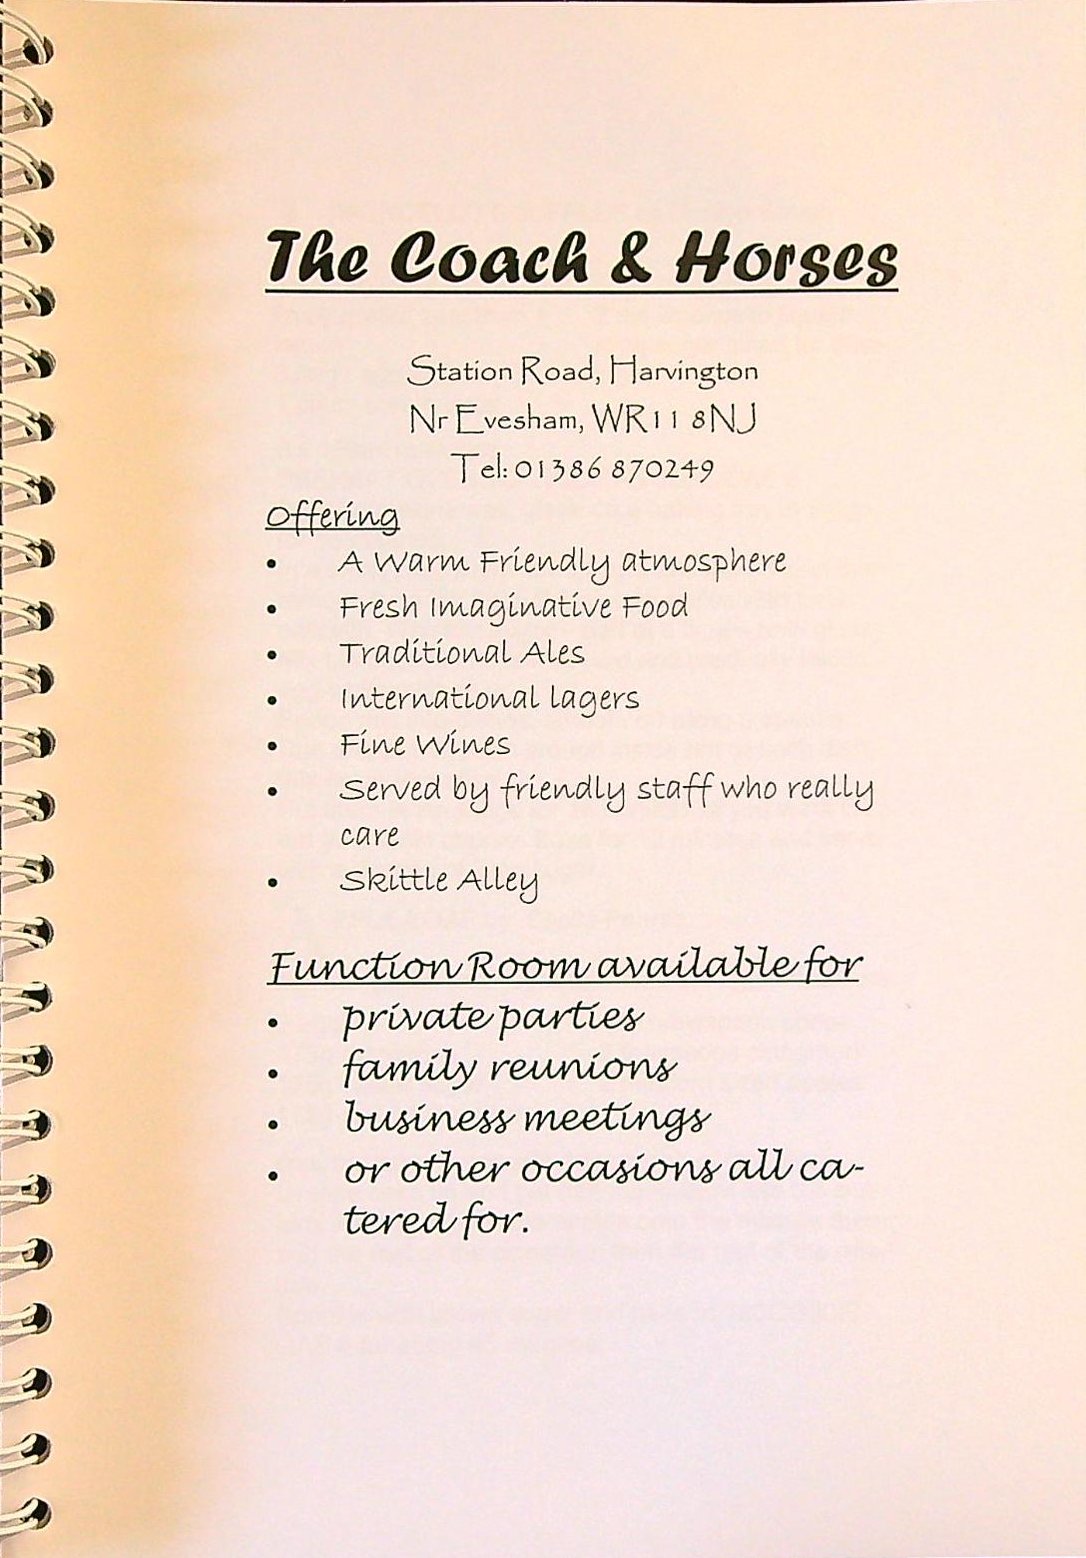 The Coach & Horses
Station Road, Harvington
Nr Evesham, WR11 8NJ
Tel: 01386 870249
Offering
• A Warm Friendly atmosphere
• Fresh Imaginative Food
• Traditional Ales
• International lagers
• Fine Wines
• Served by friendly staff who really
care
• Skittle Alley
Function Room available for
• private parties
• family reunions
• business meetings
• or other occasions all ca-
tered for.